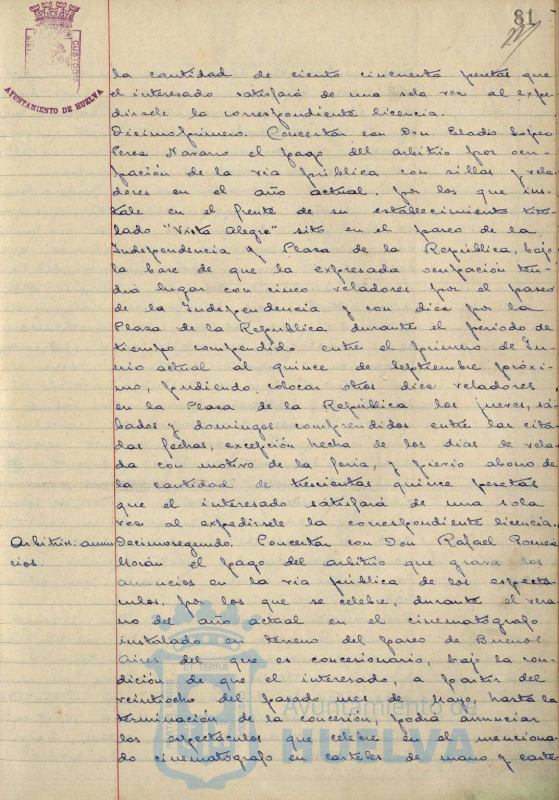 81
AYUNTAMIENTO DE HUELVA
la cantidad de ciento cincuenta pesetas que
el interesado satisfará de una sola vez al expe-
dirsele la correspondiente licencia.
Decimoprimero. Concertar con Don Eladio Lopez
Perez Navarro el pago del arbitrio por ocu-
pación de la via pública con sillas y vela-
dores en el año actual, por los que ins-
tale en el frente de su establecimiento titu-
lado "Vista Alegre" sito en el paseo de la
Independencia y Plaza de la República, bajo
la base de que la expresada ocupación ten-
drá lugar con cinco veladores por el paseo
de la Independencia y con diez por la
Plaza de la Republica durante el periodo de
tiempo comprendido entre el primero de Ju-
nio actual al quince de Septiembre próxi-
mo, pudiendo colocar otros diez veladores
en la Plaza de la República los jueves, sá-
bados y domingos comprendidos entre las cita-
das fechas, excepción hecha de los dias de vela-
da con motivo de la feria, y previo abono de
la cantidad de trescientas quince pesetas
que el interesado satisfará de una sola
vez al expedirsele la correspondiente licencia.
Arbitrio: anun-
cios.
Decimosegundo. Concertar con Don Rafael Gomez
Morán el pago del arbitrio que grava los
anuncios en la via pública de los espectá-
culos, por los que se celebre, durante el vera-
no del año actual en el cinematógrafo
instalado en terreno del paseo de Buenos
Aires del que es concesionario, bajo la con-
dición de que el interesado, a partir del
veintiocho del pasado mes de Mayo, hasta la
terminación de la concesión, podrá anunciar
los espectáculos que celebre en el menciona-
do cinematógrafo en carteles de mano y carte-
Ayuntamiento de
HUELVA